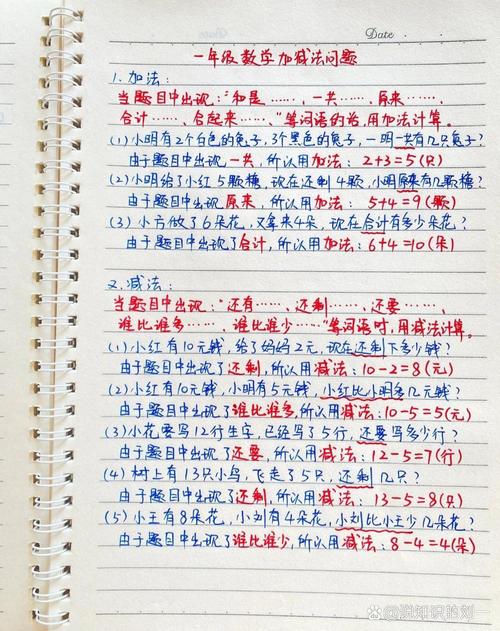 Date
一年级数学加减法问题
1.加法：
当题目中出现："和是……、一共……、原来……、
合计……、合起来……、"等词语的话,用加法计算。
(1)小明有2个白色的兔子,3个黑色的兔子,一明一共有几只兔子?
由于题目中出现,一共,所以用加法：2+3=5(只)
(2)小明给了小红5颗糖,现在还剩4颗,小明原来有几颗糖?
由于题目中出现原来,所以用加法：5+4=9(颗)
(3)小方做了6朵花,又拿来4朵,现在合计有多少朵花?
由于题目中出现了合计,所以用加法：6+4=10(朵)
2.减法：
当题目中出现："还有……、还剩……、还要……、
谁比谁多……、谁比谁少……"等词语时,用减法计算。
(1)小红有10元钱,给了妈妈2元,现在还剩下多少钱?
由于题目中出现了还剩,所以用减法：10-2=8(元)
(2)小红有10元钱,小明有5元钱,小红比小明多几元钱?
由于题目中出现了谁比谁多,所以用减法：10-5=5(元)
(3)小花要写12行生字,已经写了5行,还要写多少行?
由于题目中出现了还要,所以用减法：12-5=7(行)
(4)树上有13只小鸟,飞走了5只,还剩几只?
由于题目中出现了还剩,所以用减法：13-5=8(只)
(5)小王有8朵花,小刘有4朵花,小刘比小王少几朵花?
由于题目中出现了谁比谁少,所以用减法：8-4=4(朵)
说知识的刘一